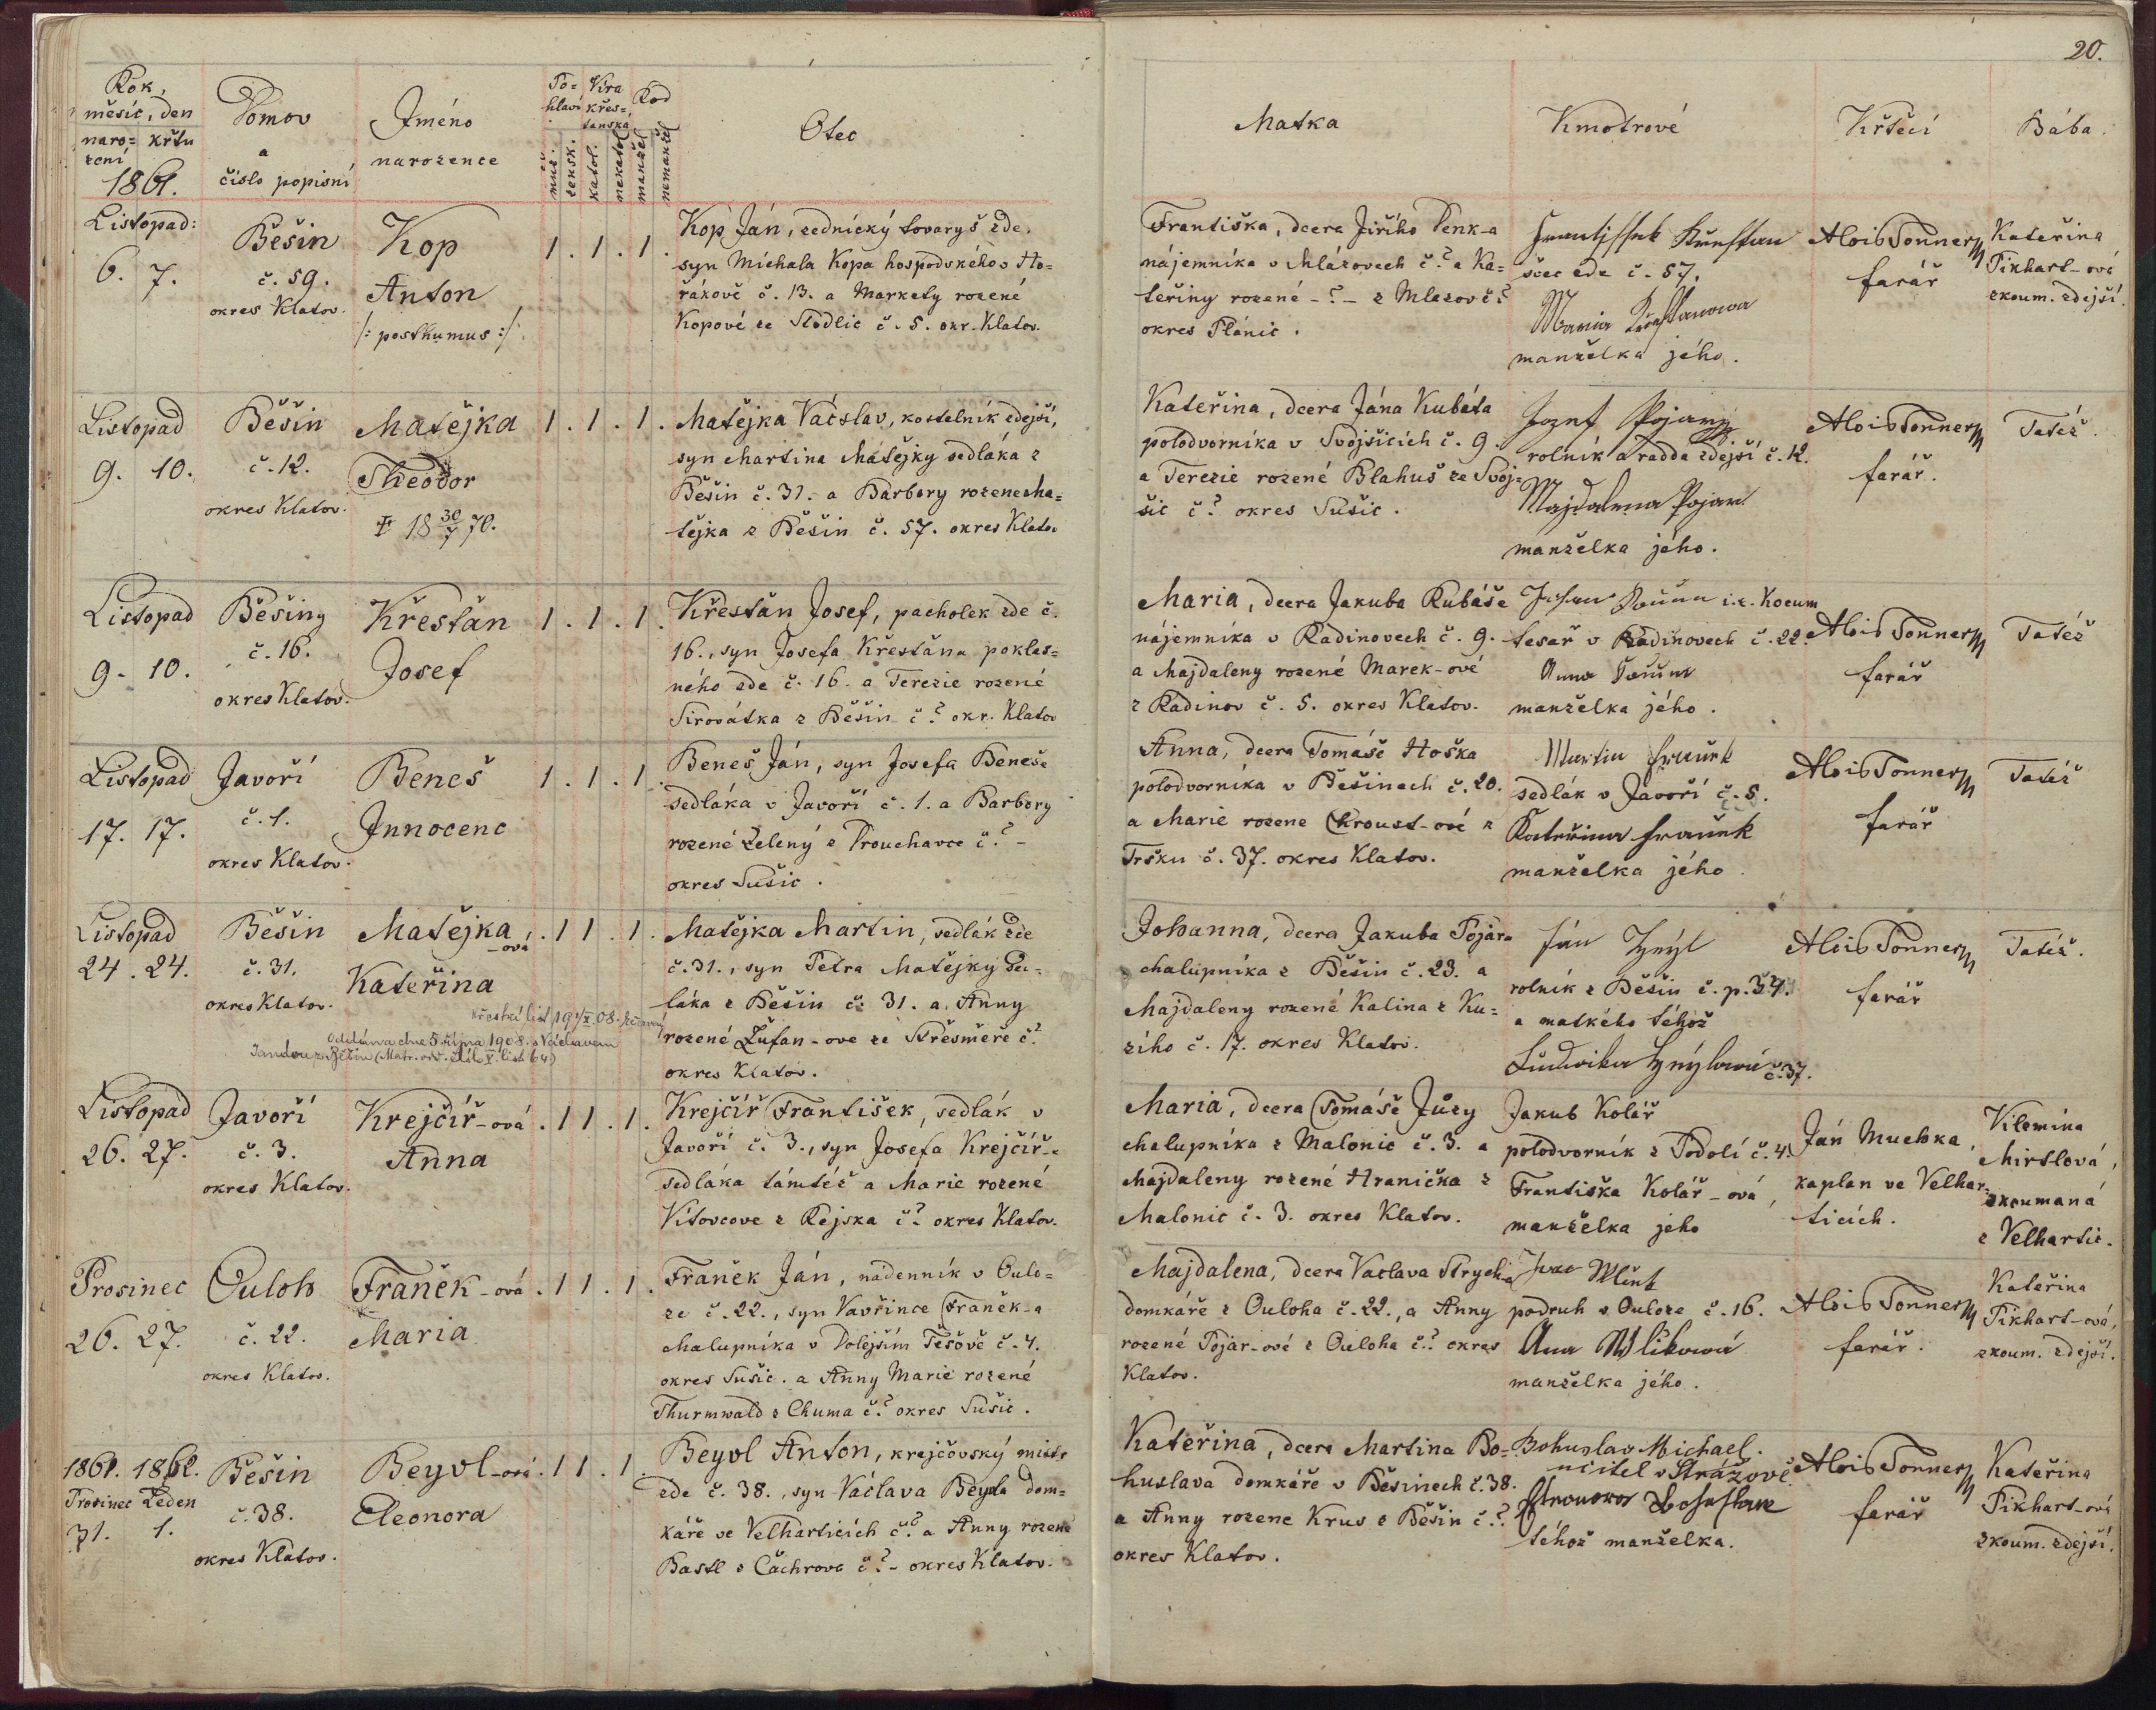 20.
Rok,
měsíc, den
naro=
zení
křtu
1861.
Domov
a
číslo popisní
Jméno
narozence
Po=
hlaví
muž.
žensk.
Víra
křes=
ťanská
katol.
nekatol.
Rod
manžel.
nemanžel.
Otec
Matka
Kmotrové
Křtěcí
Bába.
Listopad:
6. 7.
Běšin
č. 59.
okres Klatov.
Kop
Anton
/: posthumus :/
1 . 1 . 1 .
Kop Ján, zednický tovaryš zde,
syn Michala Kopa hospodského v Ho=
řákově č. 13. a Markety rozené
Kopové ze Slodlic č. 5. okr. Klatov.
Františka, dcera Jiřího Denk-a
nájemníka v Mlázovech č.? a Ka=
teřiny rozené -?- z Mlazov č.?
okres Plánic.
Frantissek Křesstan
zde č. 57.
Maria Křesstanowa
manželka jého.
Alois Tonner
farář
Kateřina
Pikhart-ová
zkoum. zdejší.
Listopad
9. 10.
Běšin
č. 12.
okres Klatov.
Matějka
Theodor
18 30/7 70.
1 . 1 . 1 .
Matějka Václav, kostelník zdejší,
syn Martina Matějky sedláka z
Běšin č. 31. a Barbory rozené Ma=
tějka z Běšin č. 57. okres Klatov
Kateřina, dcera Jána Kubáta
polodvorníka v Svojšicích č. 9.
a Terezie rozené Blahuš ze Svoj=
šic č.? okres Sušic.
Jozef Pojarý
rolník a radda zdejší č. 12.
Majdalena Pojar
manželka jého.
Alois Tonner
farář.
Tatéž.
Listopad
9. 10.
Běšiny
č. 16.
okres Klatov.
Křesťán
Josef
1 . 1 . 1 .
Křesťán Josef, pacholek zde č.
16., syn Josefa Křesťána poklas=
ného zde č. 16. a Terezie rozené
Sirovátka z Běšin č.? okr. Klatov
Maria, dcera Jakuba Rubáše
nájemníka v Radinovech č. 9.
a Majdaleny rozené Marek-ové
z Radinov č. 5. okres Klatov.
tesař v Radinovech č. 22.
Anna
manželka jého.
Alois Tonner
farář
Tatéž
Listopad
17. 17.
Javoří
č. 1.
okres Klatov.
Beneš
Innocenc
1 . 1 . 1 .
Beneš Ján, syn Josefa Beneše
sedláka v Javoří č. 1. a Barbory
rozené Zelený z Prouchavce č.? -
okres Sušic.
Anna, dcera Tomáše Hoška
polodvorníka v Běšinech č. 20.
a Marie rozene Chroust-ové z
Trsku č. 37. okres Klatov.
Martin Franěk
sedlák v Javoří č. 5.
Kateřina Franěk
manželka jého.
Alois Tonner
farář
Tatéž
Listopad
24. 24.
Běšin
č. 31.
okres Klatov.
Matějka
-ová
Kateřina
Křestní list 19 1/X 08.
Oddána dne 5. října 1908. s Václavem
Jandou z Běšin (Matr. odd. díl V. list 64)
. 1 1 . 1 .
Matějka Martin, sedlák zde
č. 31., syn Petra Matějky sed=
láka z Běšin č. 31. a Anny
rozené Žufan-ove ze Střesměře č.?
okres Klatov.
Johanna, dcera Jakuba Pojára
chalupníka z Běšin č. 23. a
Majdaleny rozené Kalina z Ku=
zího č. 17. okres Klatov.
Ján Hnýl
rolník z Běšin č. p. 34.
a matkého téhož
Ludwika Hnýlowá č. 37.
Alois Tonner
farář
Tatéž.
Listopad
26. 27.
Javoří
č. 3.
okres Klatov.
Krejčíř-ová
Anna
. 1 1 . 1 .
Krejčíř František, sedlák v
Javoří č. 3., syn Josefa Krejčíř-a
sedláka támtéž a Marie rozené
Vítovcove z Rejska č.? okres Klatov.
Maria, dcera Tomáše Jůzy
chalupníka z Malonic č. 3. a
Majdaleny rozené Hranička z
Malonic č. 3. okres Klatov.
Jakub Kolář
polodvorník z Podolí č. 4.
Františka Kolář-ová,
manželka jeho
Ján Muchka,
kaplan ve Velhar=
ticích.
Vilemína
Mirtlová,
zkoumaná
z Velhartic.
Prosinec
26. 27.
Ouloh
č. 22.
okres Klatov.
Franěk-ová
Maria
. 1 1 . 1 .
Franěk Ján, nádenník v Oulo=
ze č. 22., syn Vavřince Franěk-a
chalupníka v Dolejším Těšově č. 4.
okres Sušic. a Anny Marie rozené
Thurmwald z Chuma č.? okres Sušic.
Majdalena, dcera Vaclava Strycha
domkáře z Ouloha č. 22., a Anny
rozené Pojar-ové z Ouloha č.? okres
Klatov.
podruh v Ouloze č. 16.
Ana Wlčkowá
manželka jého.
Alois Tonner
farář.
Kateřina
Pikhart-ová,
zkoum. zdejší.
1861. 1862.
Prosinec Leden
31. 1.
Běšin
č. 38.
okres Klatov.
Beyvl-ová
Eleonora
. 1 1 . 1
Beyvl Anton, krejčovský mistr
zde č. 38., syn Václava Beyvla dom=
káře ve Velharticích č.? a Anny rozené
Bastl z Čachrova č.? - okres Klatov.
Kateřina, dcera Martina Bo=
huslava domkáře v Běšinech č. 38.
a Anny rozene Krus z Běšin č.?
okres Klatov.
Bohuslav Michael.
učitel v Strážově
Eleonora Bohuslav
téhož manželka.
Alois Tonner
farář
Kateřina
Pikhart-ová
zkoum. zdejší.